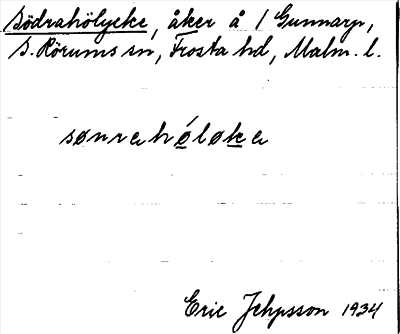 Södrahölycke, åker å 1 Gunnarp,
S. Rörums sn, Frosta hd, Malm. l.
sønrahóløka
Eric Jehpsson 1934